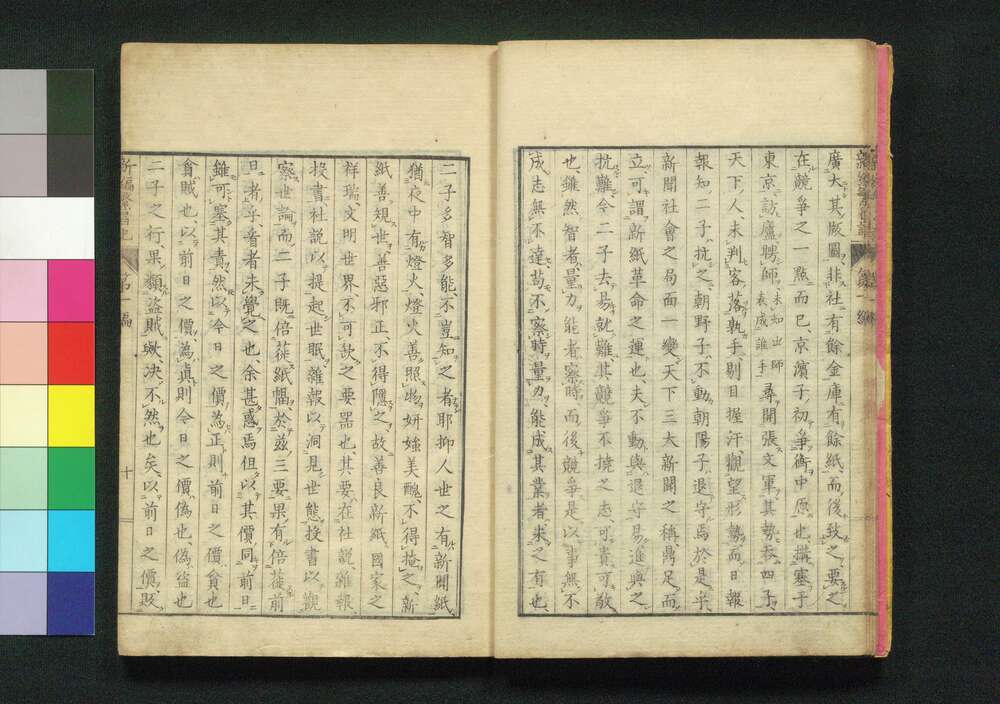 廣大其版圖、非社有餘金庫有餘紙、而後致之、要之
在競爭之一點而已、京濱子初爭衡中原也、構塞于
東京、訪廬聘師、未知出師表成誰手、尋開張文軍其勢呑四子、
天下人、未判客落孰手、剔目握汗、觀望形勢而日報
報知二子、抗之、朝野子、不動朝陽子、退守焉於是乎
新聞社會之局面一變、天下三大新聞之稱鼎足而
立、可謂新紙革命之運也、夫不動與退守易、進與之
抗難、今二子去易就難、其競爭不撓之志可貴、可敬
也、雖然智者量力、能者察時、而後競爭、是以事無不
成志無不達、苟不察時量力、能成其業者、未之有也、
二子多智多能、不豈知之者耶、抑人世之有新聞紙、
猶夜中有燈火、燈火善照物、妍媸美醜、不得掩之、新
紙善規世、善惡邪正、不得隱之、故善良新紙、國家之
祥瑞、文明世界不可缺之要器也、其要在社說雜報
投書、社說以提起世眠、雜報以洞見世態、投書以觀
察世論、而二子既倍蓰紙幅、於茲三要果有倍蓰前
日者乎、看者未覺之也、余甚惑焉、但以其價同前日
雖可塞其責、然以今日之價為正、則前日之價貪也
貪賊也、以前日之價為真、則今日之價偽也、偽盜也
二子之行、果類盜賊歟、決不然也矣、以前日之價、販
新編繁昌記 第一編 十